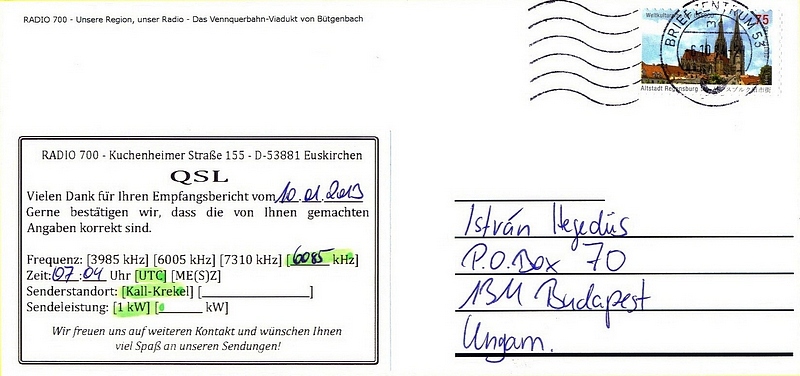 RADIO 700 - Unsere Region, unser Radio - Das Vennquerbahn-Viadukt von Bütgenbach
75
BRIEFZENTRUM 53
Altstadt Regensburg
RADIO 700 - Kuchenheimer Straße 155 - D-53881 Euskirchen
QSL
Vielen Dank für Ihren Empfangsbericht vom 10.01.2013
Gerne bestätigen wir, dass die von Ihnen gemachten
Angaben korrekt sind.
Frequenz: [3985 kHz] [6005 kHz] [7310 kHz] [6085 kHz]
Zeit: 07:04 Uhr [UTC] [ME(S)Z]
Senderstandort: [Kall-Krekel] [____________]
Sendeleistung: [1 kW] [______ kW]
Wir freuen uns auf weiteren Kontakt und wünschen Ihnen
viel Spaß an unseren Sendungen!
István Hegedüs
P.O.Box 70
Budapest
Ungarn.